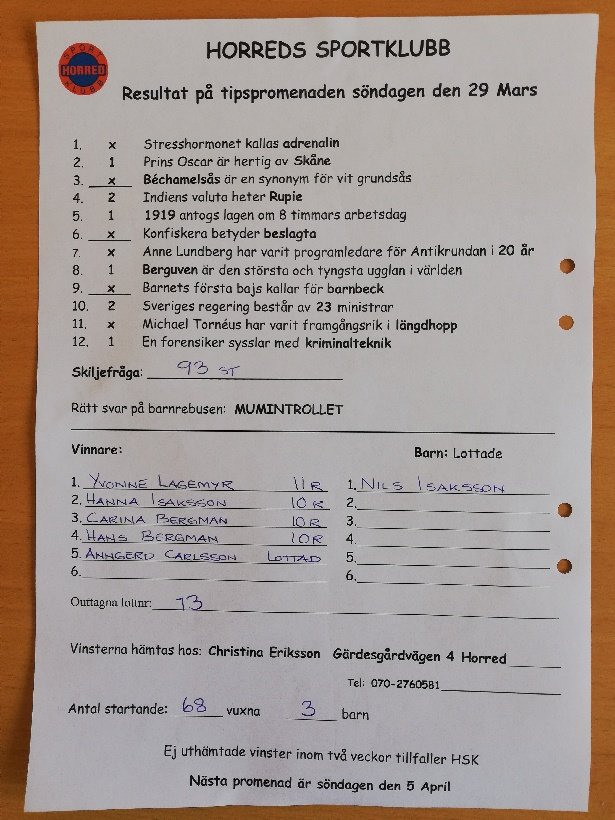 SPORT
HORRED
KLUBB
HORREDS SPORTKLUBB
Resultat på tipspromenaden söndagen den 29 Mars
1. x Stresshormonet kallas adrenalin
2. 1 Prins Oscar är hertig av Skåne
3. x Béchamelsås är en synonym för vit grundsås
4. 2 Indiens valuta heter Rupie
5. 1 1919 antogs lagen om 8 timmars arbetsdag
6. x Konfiskera betyder beslagta
7. x Anne Lundberg har varit programledare för Antikrundan i 20 år
8. 1 Berguven är den största och tyngsta ugglan i världen
9. x Barnets första bajs kallar för barnbeck
10. 2 Sveriges regering består av 23 ministrar
11. x Michael Tornéus har varit framgångsrik i längdhopp
12. 1 En forensiker sysslar med kriminalteknik
Skiljefråga: 93 ST
Rätt svar på barnrebusen: MUMINTROLLET
Vinnare: Barn: Lottade
1. YVONNE LAGEMYR 11 R 1. NILS ISAKSSON
2. HANNA ISAKSSON 10 R 2.
3. CARINA BERGMAN 10 R 3.
4. HANS BERGMAN 10 R 4.
5. ANNGERD CARLSSON LOTTAD 5.
6. 6.
Outtagna lottnr: 73
Vinsterna hämtas hos: Christina Eriksson Gärdesgårdvägen 4 Horred
Tel: 070-2760581
Antal startande: 68 vuxna 3 barn
Ej uthämtade vinster inom två veckor tillfaller HSK
Nästa promenad är söndagen den 5 April